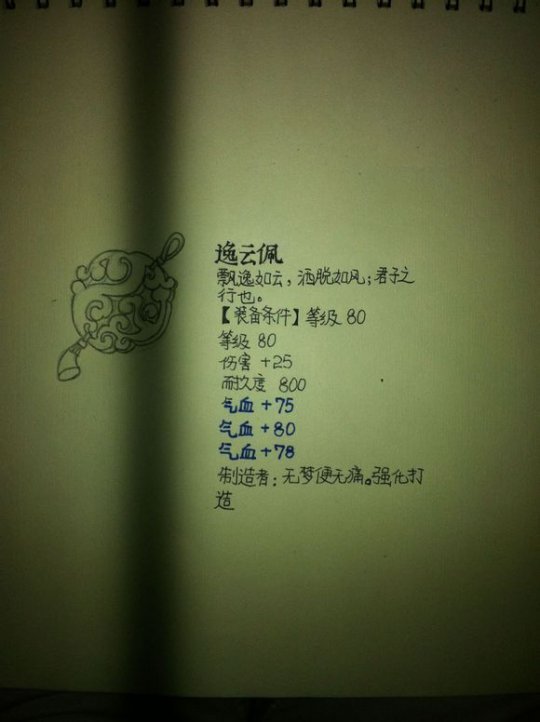 逸云佩
飘逸如云，洒脱如风；君子之
行也。
【装备条件】等级 80
等级 80
伤害 +25
耐久度 800
气血 +75
气血 +80
气血 +78
制造者：无梦便无痛。强化打
造